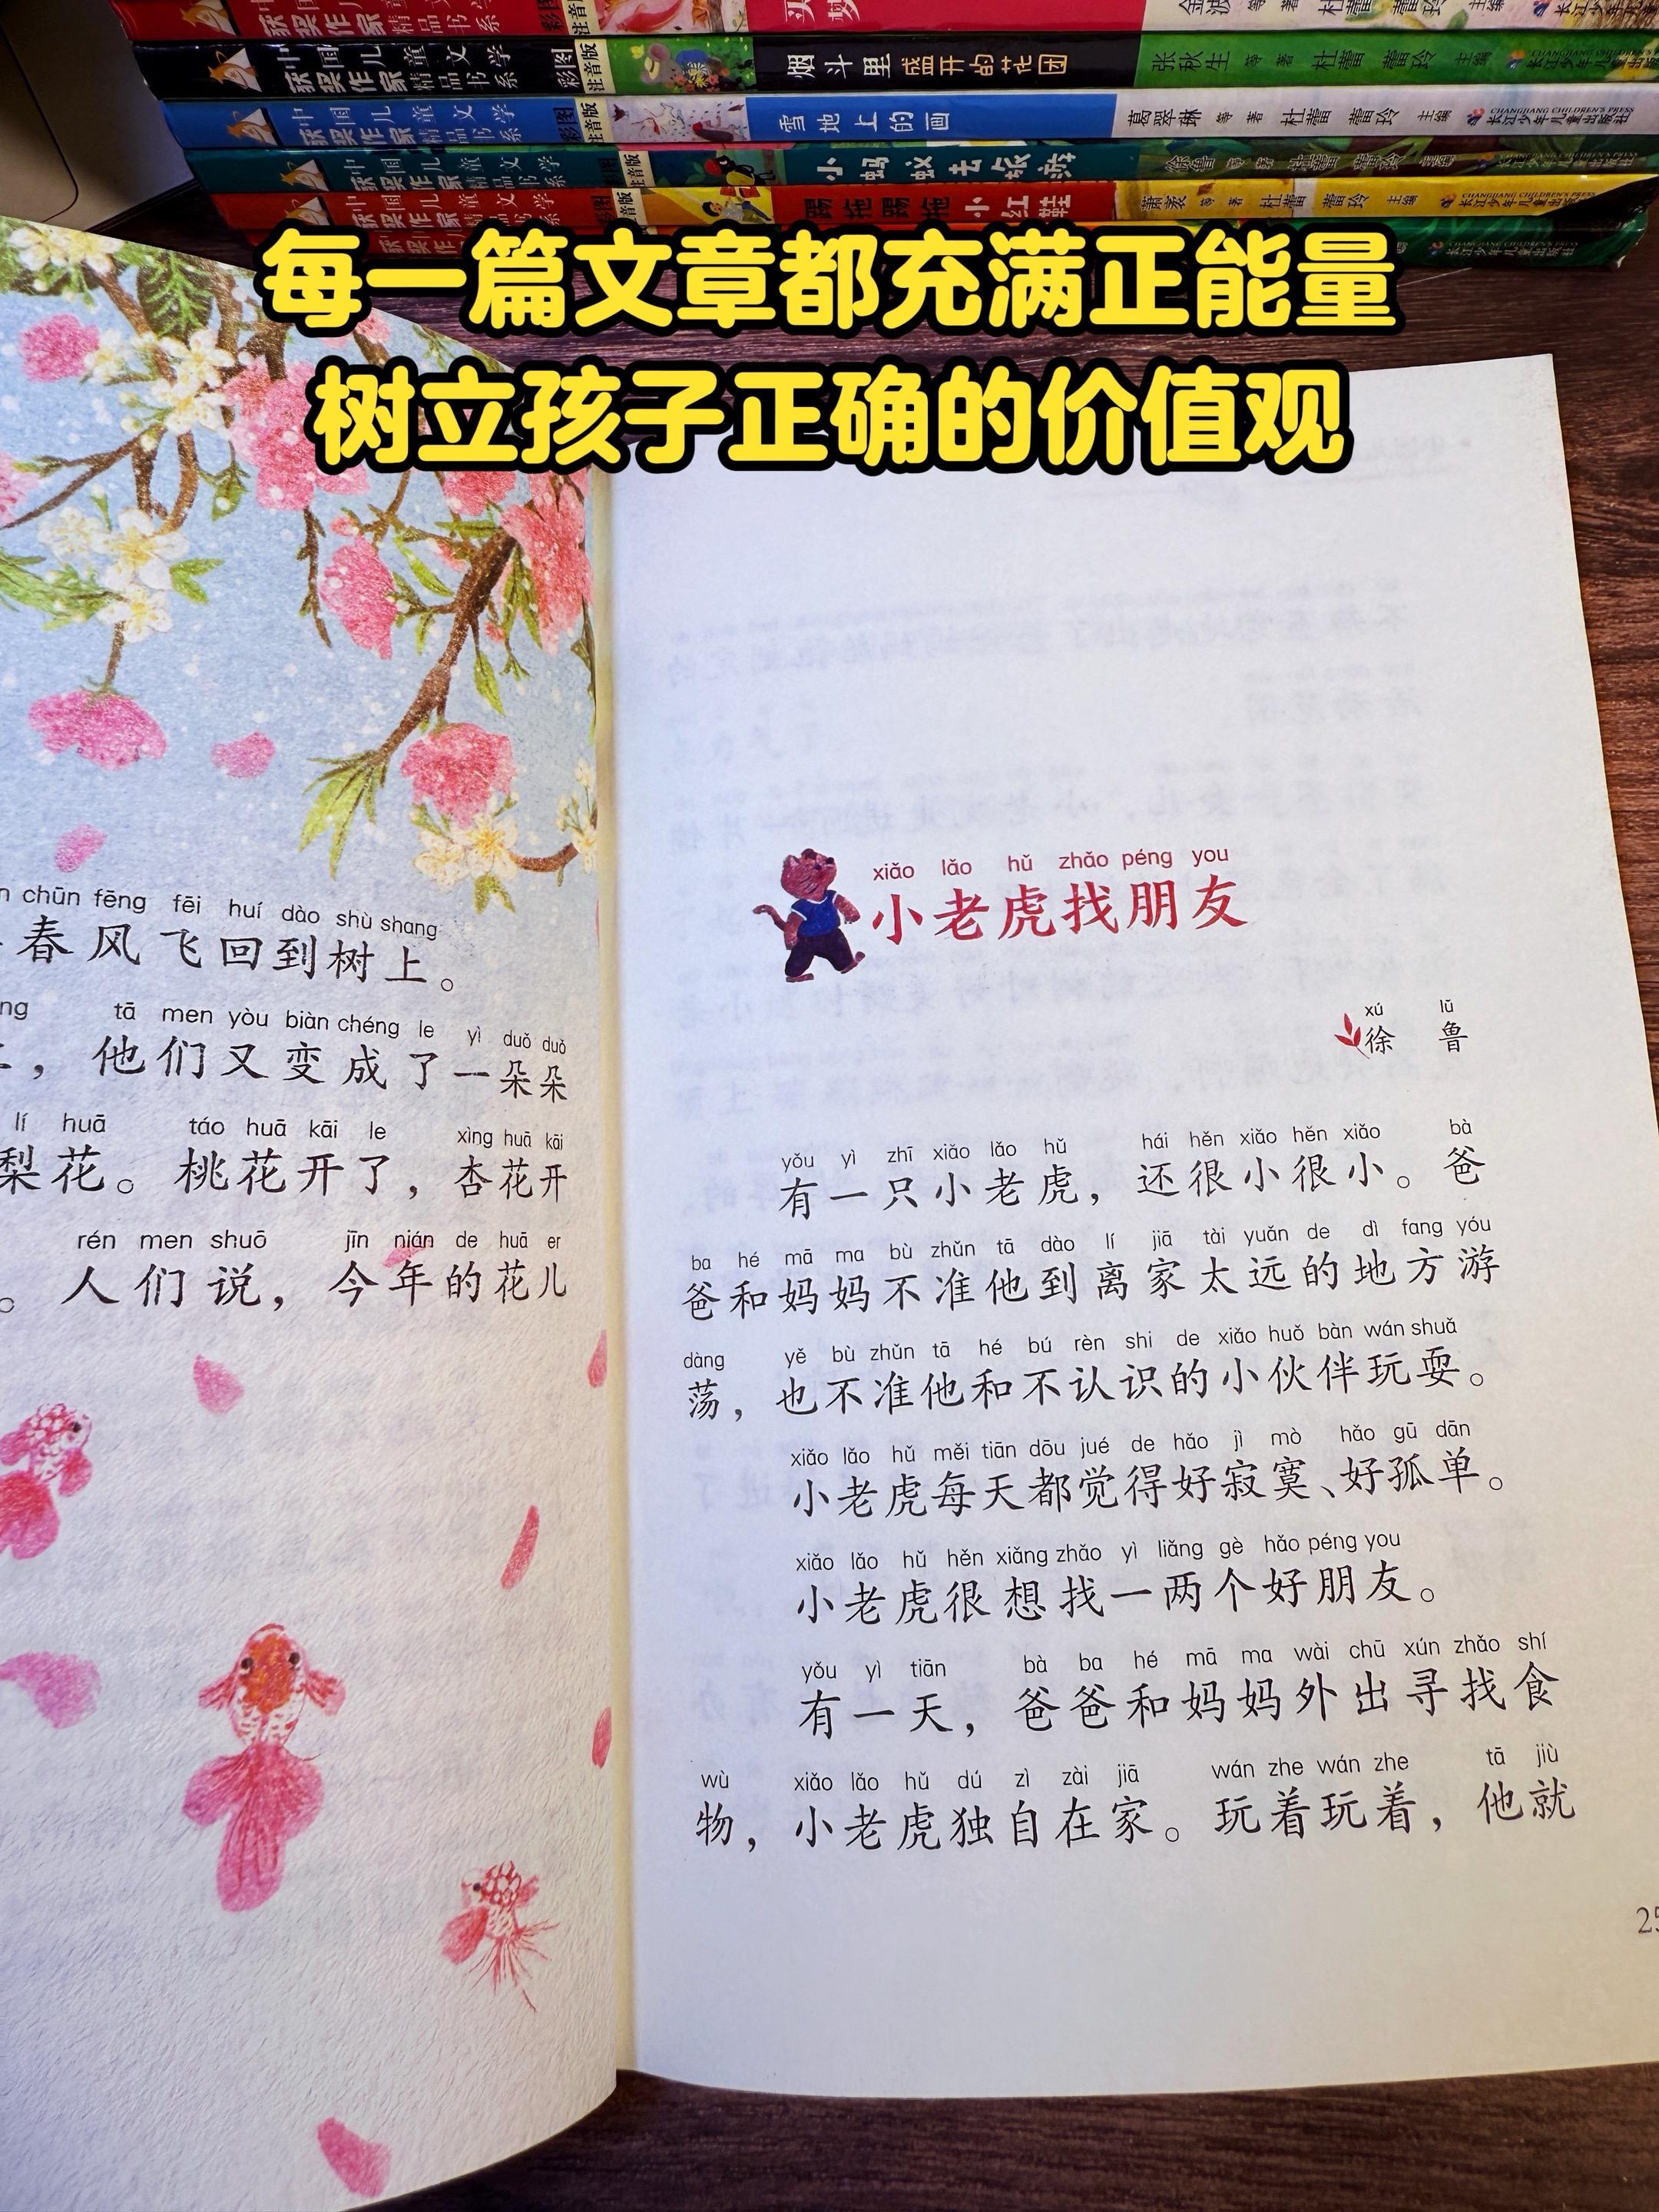 中国儿童文学
获奖作家精品书系
彩图
注音版
金波 等 著 杜蕾 蕾玲 主编
中国儿童文学
获奖作家精品书系
彩图
注音版
烟斗里盛开的花园
张秋生 等 著 杜蕾 蕾玲 主编
CHANGJIANG CHILDREN'S PRESS
长江少年儿童出版社
中国儿童文学
获奖作家精品书系
彩图
注音版
雪地上的画
葛翠琳 等 著 杜蕾 蕾玲 主编
CHANGJIANG CHILDREN'S PRESS
长江少年儿童出版社
中国儿童文学
获奖作家精品书系
小蚂蚁去旅游
徐鲁 等 著
中国儿童文学
获奖作家精品书系
踢拖踢拖小红鞋
萧袤 等 著 杜蕾 蕾玲 主编
CHANGJIANG CHILDREN'S PRESS
长江少年儿童出版社
每一篇文章都充满正能量
树立孩子正确的价值观
chūn fēng fēi huí dào shù shang
春风飞回到树上。
tā men yòu biàn chéng le yì duǒ duǒ
，他们又变成了一朵朵
lí huā táo huā kāi le xìng huā kāi
梨花。桃花开了，杏花开
rén men shuō jīn nián de huā er
。人们说，今年的花儿
xiǎo lǎo hǔ zhǎo péng you
小老虎找朋友
xú lǔ
徐 鲁
yǒu yì zhī xiǎo lǎo hǔ hái hěn xiǎo hěn xiǎo bà
有一只小老虎，还很小很小。爸
ba hé mā ma bù zhǔn tā dào lí jiā tài yuǎn de dì fang yóu
爸和妈妈不准他到离家太远的地方游
dàng yě bù zhǔn tā hé bú rèn shi de xiǎo huǒ bàn wán shuǎ
荡，也不准他和不认识的小伙伴玩耍。
xiǎo lǎo hǔ měi tiān dōu jué de hǎo jì mò hǎo gū dān
小老虎每天都觉得好寂寞、好孤单。
xiǎo lǎo hǔ hěn xiǎng zhǎo yì liǎng gè hǎo péng you
小老虎很想找一两个好朋友。
yǒu yì tiān bà ba hé mā ma wài chū xún zhǎo shí
有一天，爸爸和妈妈外出寻找食
wù xiǎo lǎo hǔ dú zì zài jiā wán zhe wán zhe tā jiù
物，小老虎独自在家。玩着玩着，他就